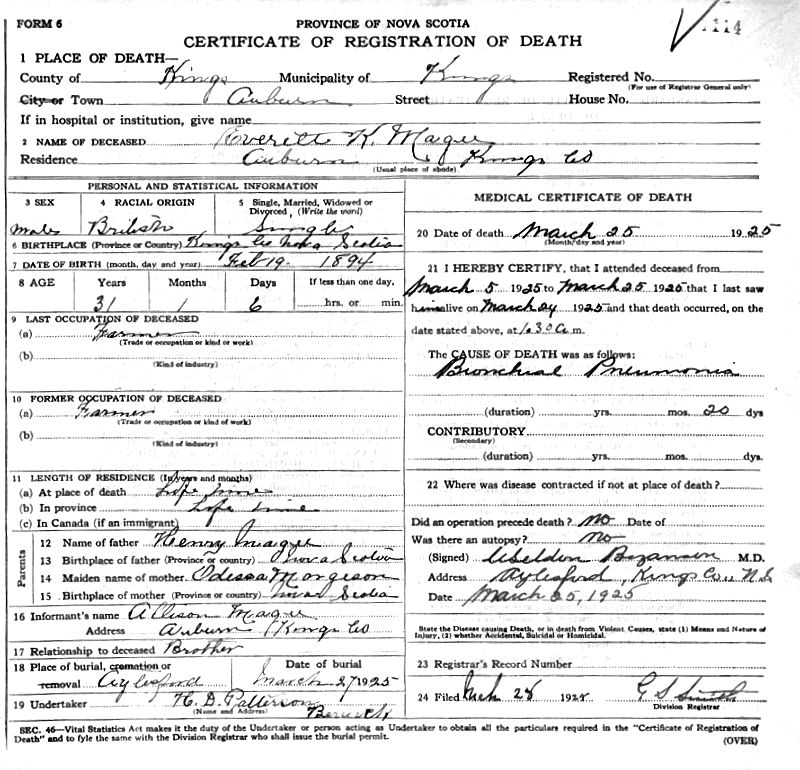 FORM 6
PROVINCE OF NOVA SCOTIA
114
CERTIFICATE OF REGISTRATION OF DEATH
1 PLACE OF DEATH—
County of Kings Municipality of Kings Registered No.
(For use of Registrar General only)
City or Town Auburn Street House No.
If in hospital or institution, give name
2 NAME OF DECEASED Everett K. Magee
Residence Auburn Kings Co
(Usual place of abode)
PERSONAL AND STATISTICAL INFORMATION
3 SEX 4 RACIAL ORIGIN 5 Single, Married, Widowed or Divorced, (Write the word)
Male British Single
6 BIRTHPLACE (Province or Country) Kings Co Nova Scotia
7 DATE OF BIRTH (month, day and year) Feb 19 1894
8 AGE Years Months Days If less than one day,
31 1 6 hrs. or min.
9 LAST OCCUPATION OF DECEASED
(a) Farmer
(Trade or occupation or kind or work)
(b)
(Kind of industry)
10 FORMER OCCUPATION OF DECEASED
(a) Farmer
(Trade or occupation or kind of work)
(b)
(Kind of industry)
11 LENGTH OF RESIDENCE (In years and months)
(a) At place of death Life time
(b) In province Life time
(c) In Canada (if an immigrant)
Parents
12 Name of father Henry Magee
13 Birthplace of father (Province or country) Nova Scotia
14 Maiden name of mother Odessa Morgeson
15 Birthplace of mother (Province or country) Nova Scotia
16 Informant's name Allison Magee
Address Auburn Kings Co
17 Relationship to deceased Brother
18 Place of burial, cremation or removal Aylesford Date of burial March 27 1925
19 Undertaker H. D. Patterson
(Name and Address) Berwick
MEDICAL CERTIFICATE OF DEATH
20 Date of death March 25 1925
(Month, day and year)
21 I HEREBY CERTIFY, that I attended deceased from
March 5 1925 to March 25 1925 that I last saw
him alive on March 24 1925 and that death occurred, on the
date stated above, at 1.30 a m.
The CAUSE OF DEATH was as follows:
Bronchial Pneumonia
(duration) yrs. mos. 20 dys
CONTRIBUTORY
(Secondary)
(duration) yrs. mos. dys
22 Where was disease contracted if not at place of death?
Did an operation precede death? No Date of
Was there an autopsy? No
(Signed) Weldon Bezanson M.D.
Address Aylesford, Kings Co., N.S.
Date March 25, 1925
State the Disease causing Death, or in death from Violent Causes, state (1) Means and Nature of
Injury, (2) whether Accidental, Suicidal or Homicidal.
23 Registrar's Record Number
24 Filed Mch 28 192 G S
Division Registrar
SEC. 46—Vital Statistics Act makes it the duty of the Undertaker or person acting as Undertaker to obtain all the particulars required in the "Certificate of Registration of
Death" and to fyle the same with the Division Registrar who shall issue the burial permit.
(OVER)